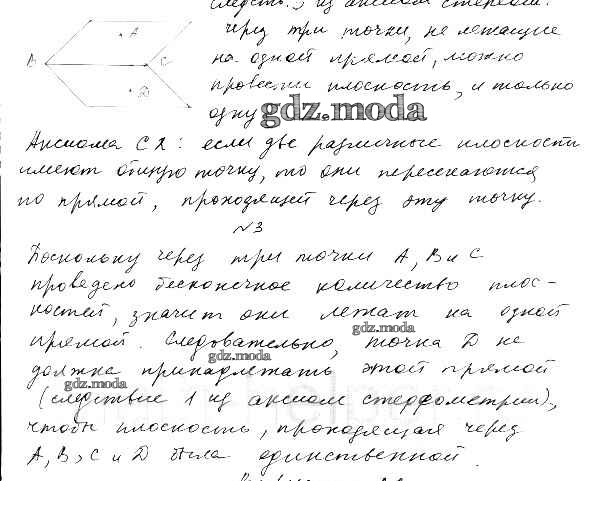 следств. , из аксиом стереом.
A
через три точки, не лежащие
B
C
на одной прямой, можно
D
провести плоскость, и только
одну
gdz.moda
Аксиома С2: если две различные плоскости
имеют общую точку, то они пересекаются
по прямой, проходящей через эту точку.
№3
Поскольку через три точки А, В и С
проведено бесконечное количество плос-
костей, значит они лежат на одной
gdz.moda
прямой. Следовательно, точка D не
gdz.moda
должна принадлежать этой прямой
gdz.moda
(следствие 1 из аксиом стереометрии),
чтобы плоскость, проходящая через
А, В, С и D была единственной.